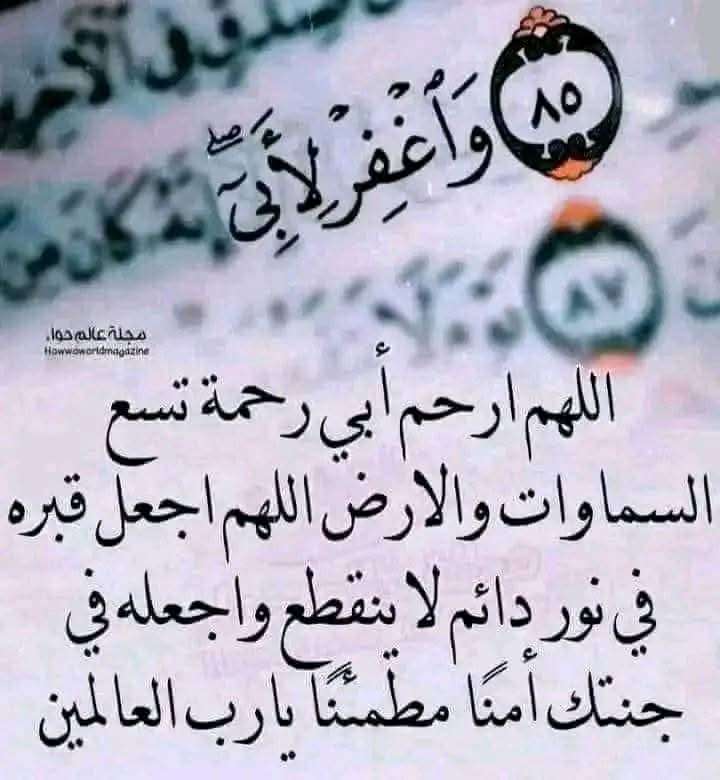 صدق في الآخر
٨٥ وَٱغْفِرْ لِأَبِيٓ ۖ إِنَّهُۥ كَانَ مِنَ
٨٧
مجلة عالم حواء
Hawwaworldmagazine
اللهم ارحم أبي رحمة تسع
السماوات والارض اللهم اجعل قبره
في نور دائم لا ينقطع واجعله في
جنتك أمنًا مطمئنًا يارب العالمين